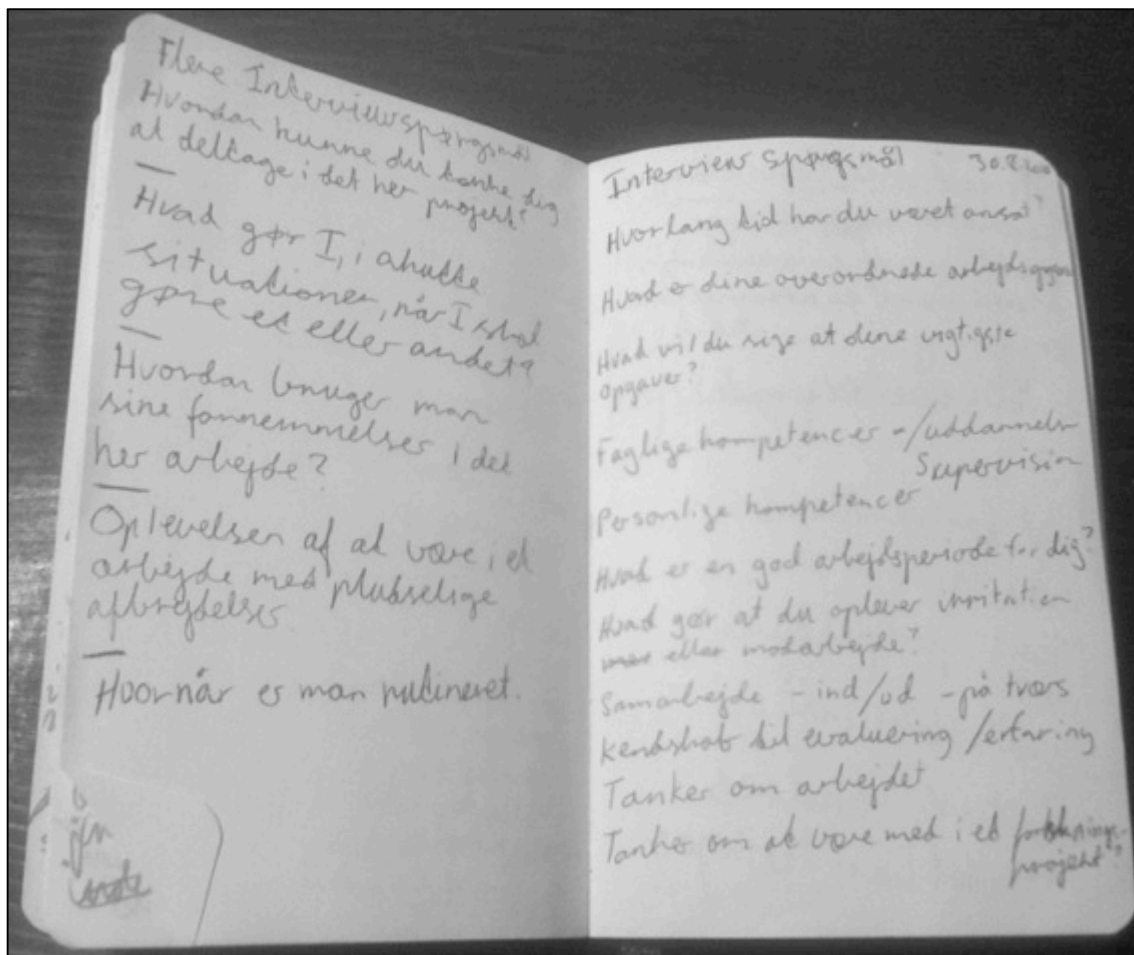 Flere Interviewspørgsmål
Hvordan kunne du tænke dig
at deltage i det her projekt?
Hvad gør I, i akutte
situationer, når I skal
gøre et eller andet?
Hvordan bruger man
sine fornemmelser i det
her arbejde?
Oplevelsen af at være i et
arbejde med pludselige
afbrydelser
Hvornår er man rutineret.
Interview spørgsmål
Hvor lang tid har du været ansat?
Hvad er dine overordnede
Hvad vil du sige at dine vigtigste
opgaver?
Faglige kompetencer - /uddannelse
Supervision
Personlige kompetencer
Hvad er en god arbejdsperiode for dig?
Hvad gør at du oplever irritation
eller modarbejde?
Samarbejde - ind/ud - på tværs
kendskab til evaluering /erfaring
Tanker om arbejdet
Tanker om at være med i et forsknings-
projekt?